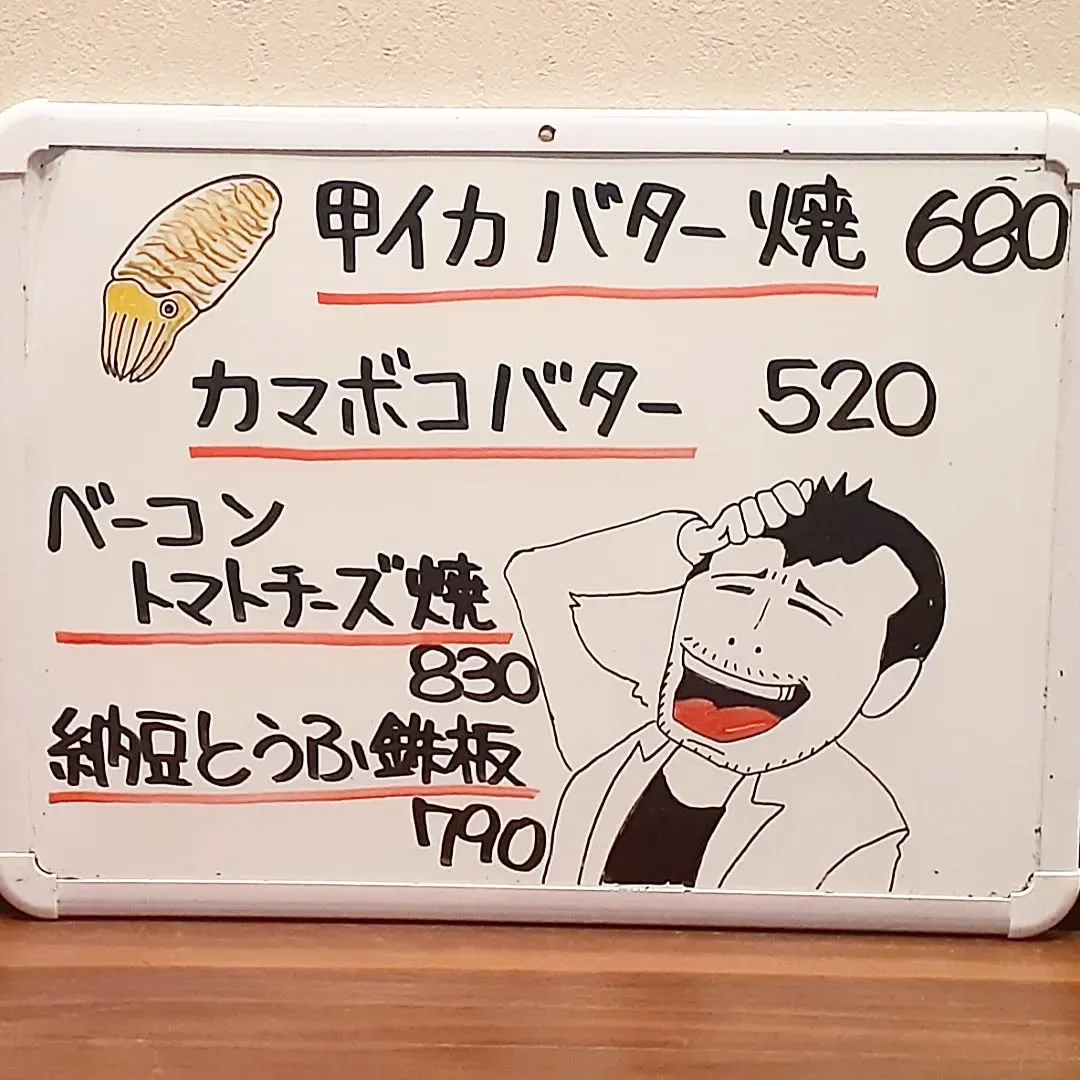 甲イカバター焼 680
カマボコバター 520
ベーコン
トマトチーズ焼
830
納豆とうふ鉄板
790